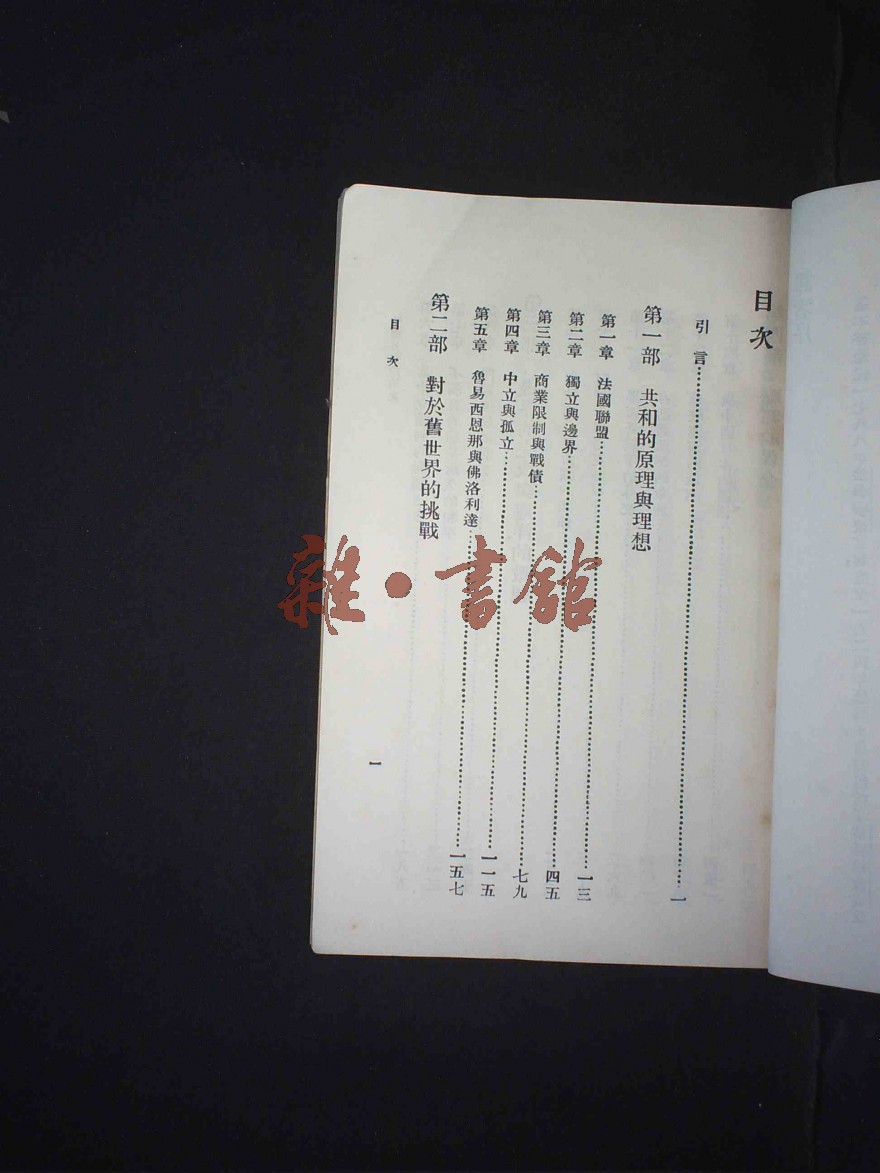 目次
引言……一
第一部 共和的原理與理想
第一章 法國聯盟……一三
第二章 獨立與邊界……四五
第三章 商業限制與戰債……七九
第四章 中立與孤立……一一五
第五章 魯易西恩那與佛洛利達……一五七
第二部 對於舊世界的挑戰
目次
一
雜·書館